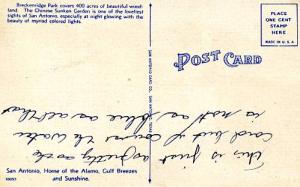 Breckenridge Park covers 400 acres of beautiful wood-
land. The Chinese Sunken Garden is one of the loveliest
sights of San Antonio, especially at night glowing with the
beauty of myriad colored lights.
POST CARD
PLACE
ONE CENT
STAMP
HERE
MADE IN U.S.A.
This is just
as pretty as the
card but of course the water
is not as blue as all that
San Antonio, Home of the Alamo, Gulf Breezes
and Sunshine.